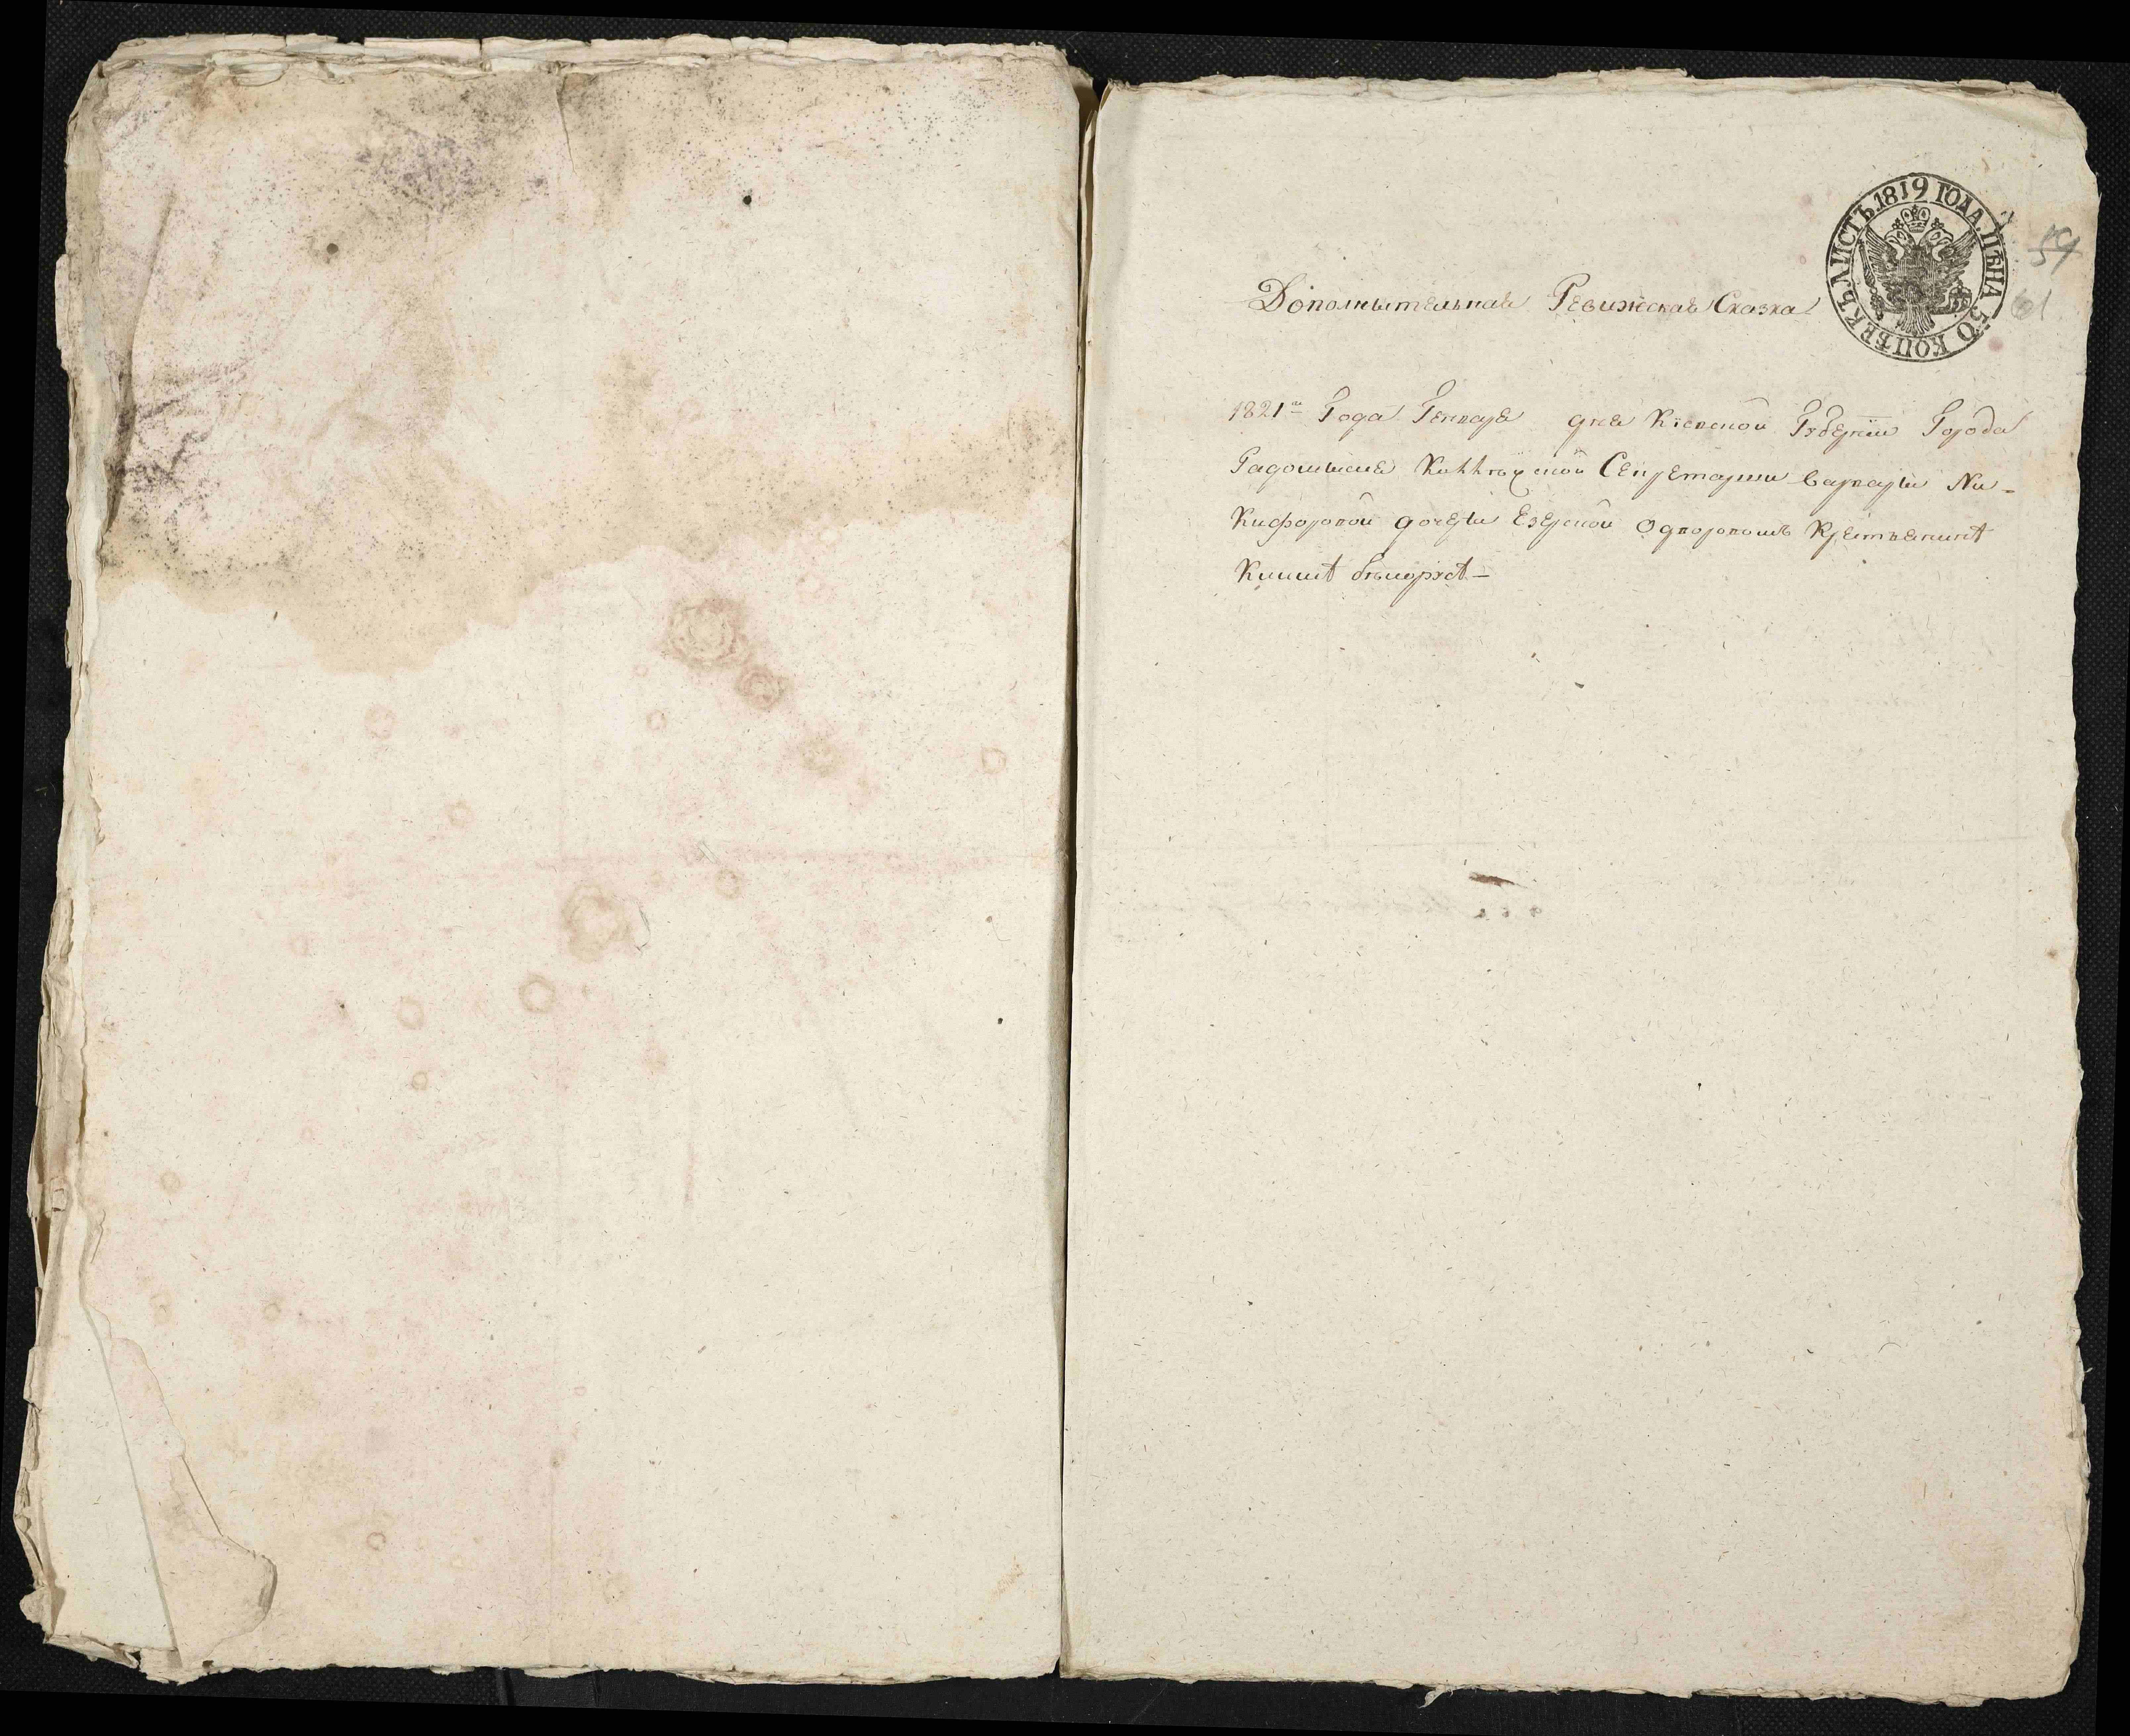 ЛИСТЪ 1819 ГОДА. ЦѢНА 50 КОПѢЕКЪ
59
61
Дополнытельная Ревижская Сказка
1821го Года Генваря дня Кіевской Губернїи Города
Радомысля Секретарши Варвары Ни-
кифоровой дочери Езерской о дворовомъ